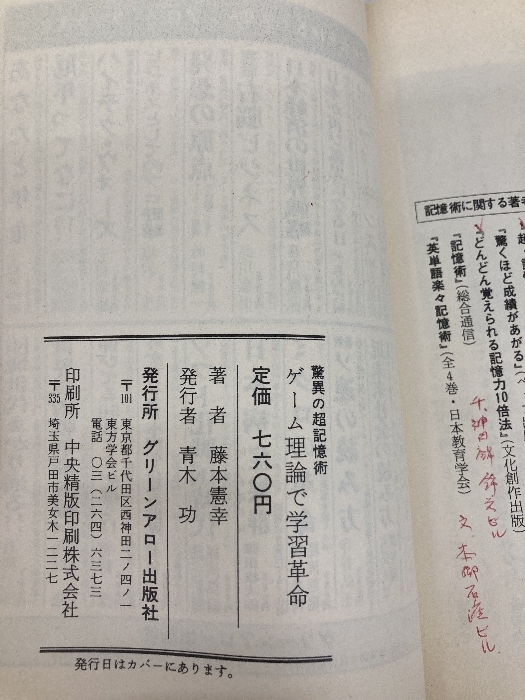 記憶術に関する著
『驚くほど成績があがる』
『どんどん覚えられる記憶力10倍法』（文化創作出版）
『記憶術』（総合通信）
『英単語楽々記憶術』（全4巻・日本教育学会）
驚異の超記憶術
ゲーム理論で学習革命
定価 七六〇円
著者 藤本憲幸
発行者 青木 功
発行所 グリーンアロー出版社
〒101 東京都千代田区西神田二ノ四ノ一
東方学会ビル
電話 〇三（二六四）六三七三
印刷所 中央精版印刷株式会社
〒335 埼玉県戸田市美女木一二二七
発行日はカバーにあります。